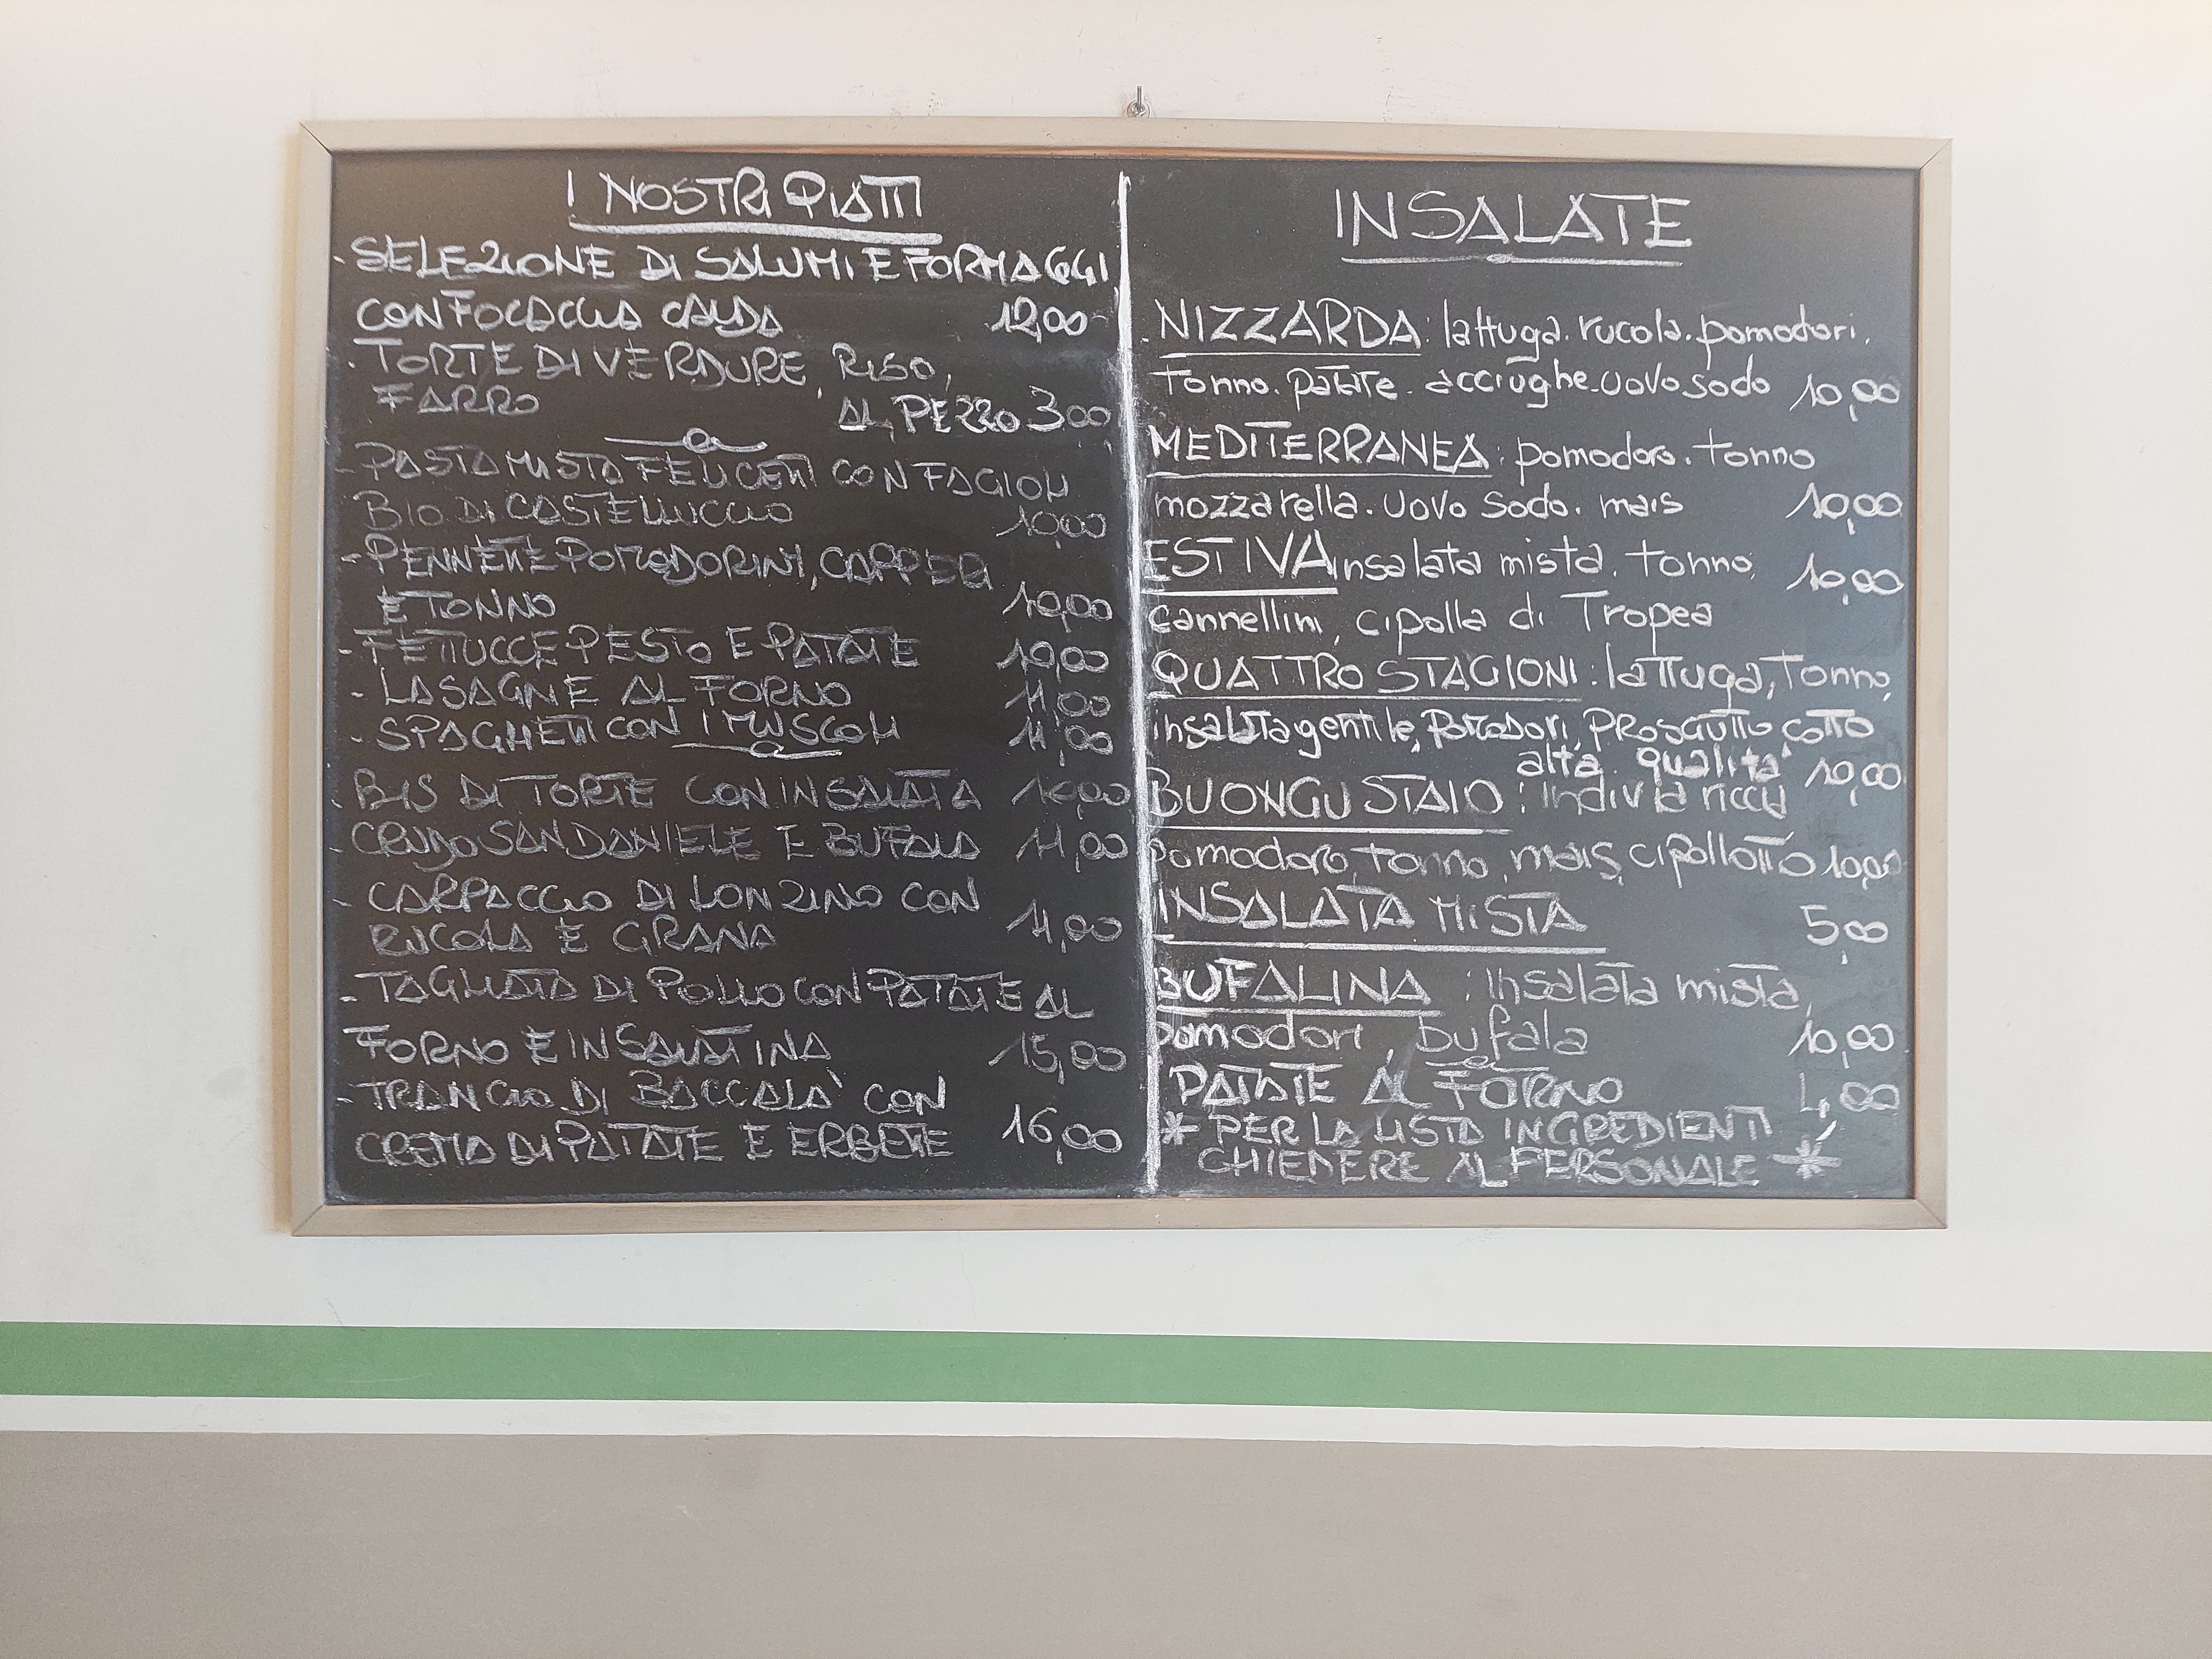 I NOSTRI PIATTI
- SELEZIONE DI SALUMI E FORMAGGI
CON FOCACCIA CALDA 12,00
- TORTE DI VERDURE, RISO,
FARRO AL PEZZO 3,00
- PASTA MISTA FELICETTI CON FAGIOLI
BIO DI CASTELLUCCIO 10,00
- PENNETTE POMODORINI, CAPPERI
E TONNO 10,00
- FETTUCCE PESTO E PATATE 10,00
- LASAGNE AL FORNO 11,00
- SPAGHETTI CON I MUSCOLI 11,00
- BIS DI TORTE CON INSALATA 10,00
- CRUDO SAN DANIELE E BUFALA 11,00
- CARPACCIO DI LONZINO CON
RUCOLA E GRANA 11,00
- TAGLIATA DI POLLO CON PATATE AL
FORNO E INSALATINA 15,00
- TRANCIO DI BACCALA' CON
CREMA DI PATATE E ERBETTE 16,00
INSALATE
. NIZZARDA: lattuga. rucola. pomodori.
Tonno. patate. acciughe. uovo sodo 10,00
MEDITERRANEA: pomodoro. tonno
mozzarella. uovo sodo. mais 10,00
ESTIVA insalata mista. tonno, 10,00
cannellini, cipolla di Tropea
QUATTRO STAGIONI: lattuga, Tonno,
insalata gentile, pomodori, PROSCIUTTO COTTO
alta qualità 10,00
BUONGUSTAIO: Indivia riccia
pomodoro, tonno, mais, cipollotto 10,00
INSALATA MISTA 5,00
BUFALINA: Insalata mista,
pomodori, bufala 10,00
PATATE AL FORNO 4,00
* PER LA LISTA INGREDIENTI
CHIEDERE AL PERSONALE *